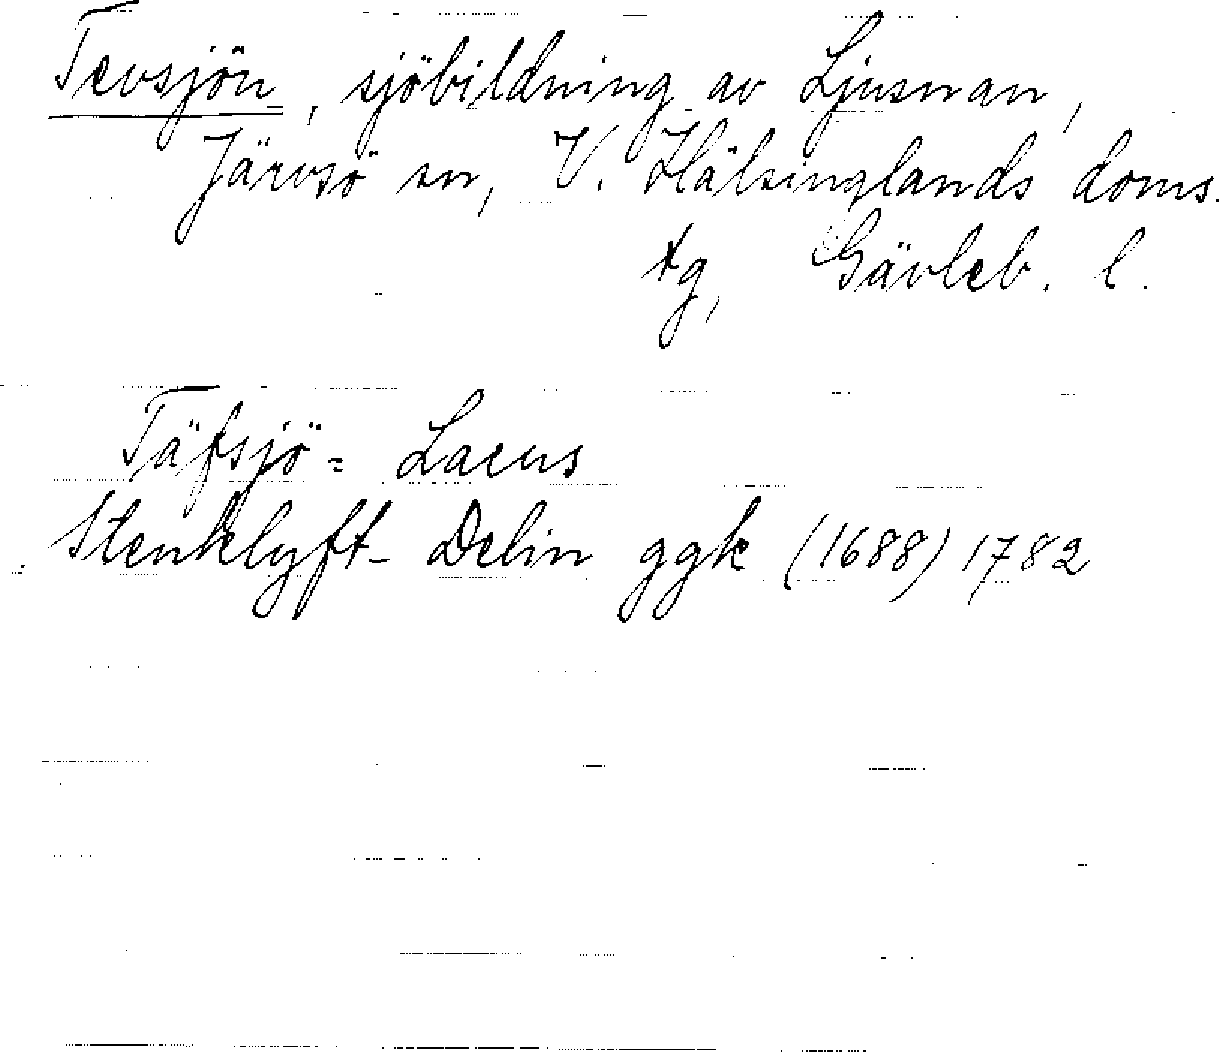 Tevsjön, sjöbildning av Ljusnan,
Järvsö sn, V. Hälsinglands doms.
tg, Gävleb. l.
Täfsjö= Lacus
Stenklyft- Delin ggk (1688) 1782